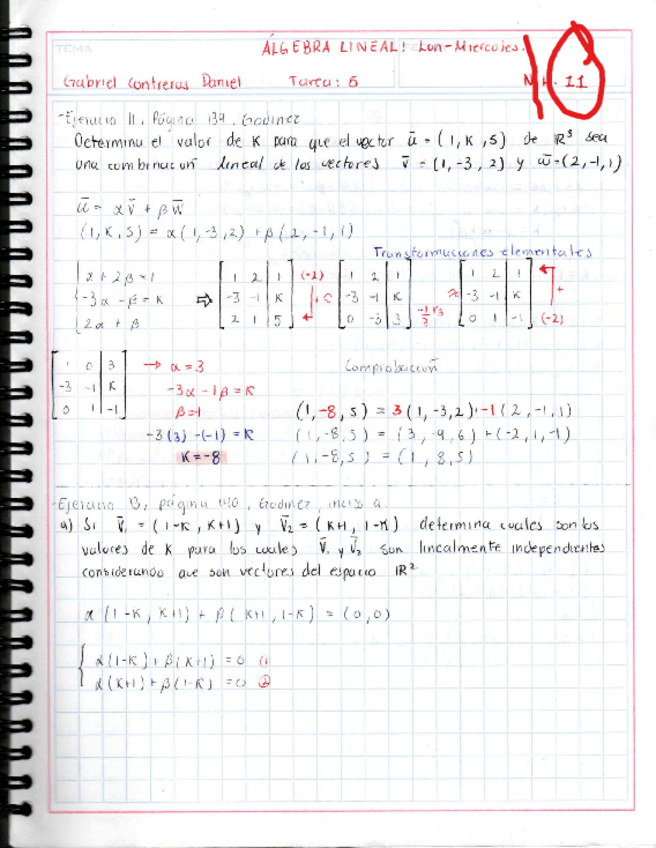 TEMA
ÁLGEBRA LINEAL: Lun-Miercoles.
Gabriel Contreras Daniel Tarea: 5 N.L. 11
10
-Ejercicio 11, Página 139. Godinez
Determina el valor de K para que el vector ū = (1, K, 5) de ℝ³ sea
una combinación lineal de los vectores v̄ = (1, -3, 2) y w̄=(2, -1, 1)
ū = αv̄ + βw̄
(1, K, 5) = α(1, -3, 2) + β(2, -1, 1)
Transformaciones elementales
α + 2β = 1
-3α - β = K
2α + β
⇒
1 2 | 1 (-2)
-3 -1 | K
2 1 | 5
≈
1 2 | 1
-3 -1 | K
0 -3 | 3 -1/3 r3
≈
1 2 | 1
-3 -1 | K +
0 1 | -1 (-2)
1 0 | 3
-3 -1 | K
0 1 | -1
→ α = 3
-3α - 1β = K
β=-1
-3(3) -(-1) = K
K = -8
Comprobación
(1, -8, 5) = 3(1, -3, 2) + -1(2, -1, 1)
(1, -8, 5) = (3, -9, 6) + (-2, 1, -1)
(1, -8, 5) = (1, 8, 5)
-Ejercicio 13, página 140, Godinez, inciso a
a) Si V̄₁ = (1-K, K+1) y V̄₂ = (K+1, 1-K) determina cuales son los
valores de K para los cuales V̄₁ y V̄₂ son linealmente independientes
considerando que son vectores del espacio ℝ²
α(1-K, K+1) + β(K+1, 1-K) = (0,0)
α(1-K) + β(K+1) = 0 ①
α(K+1) + β(1-K) = 0 ②